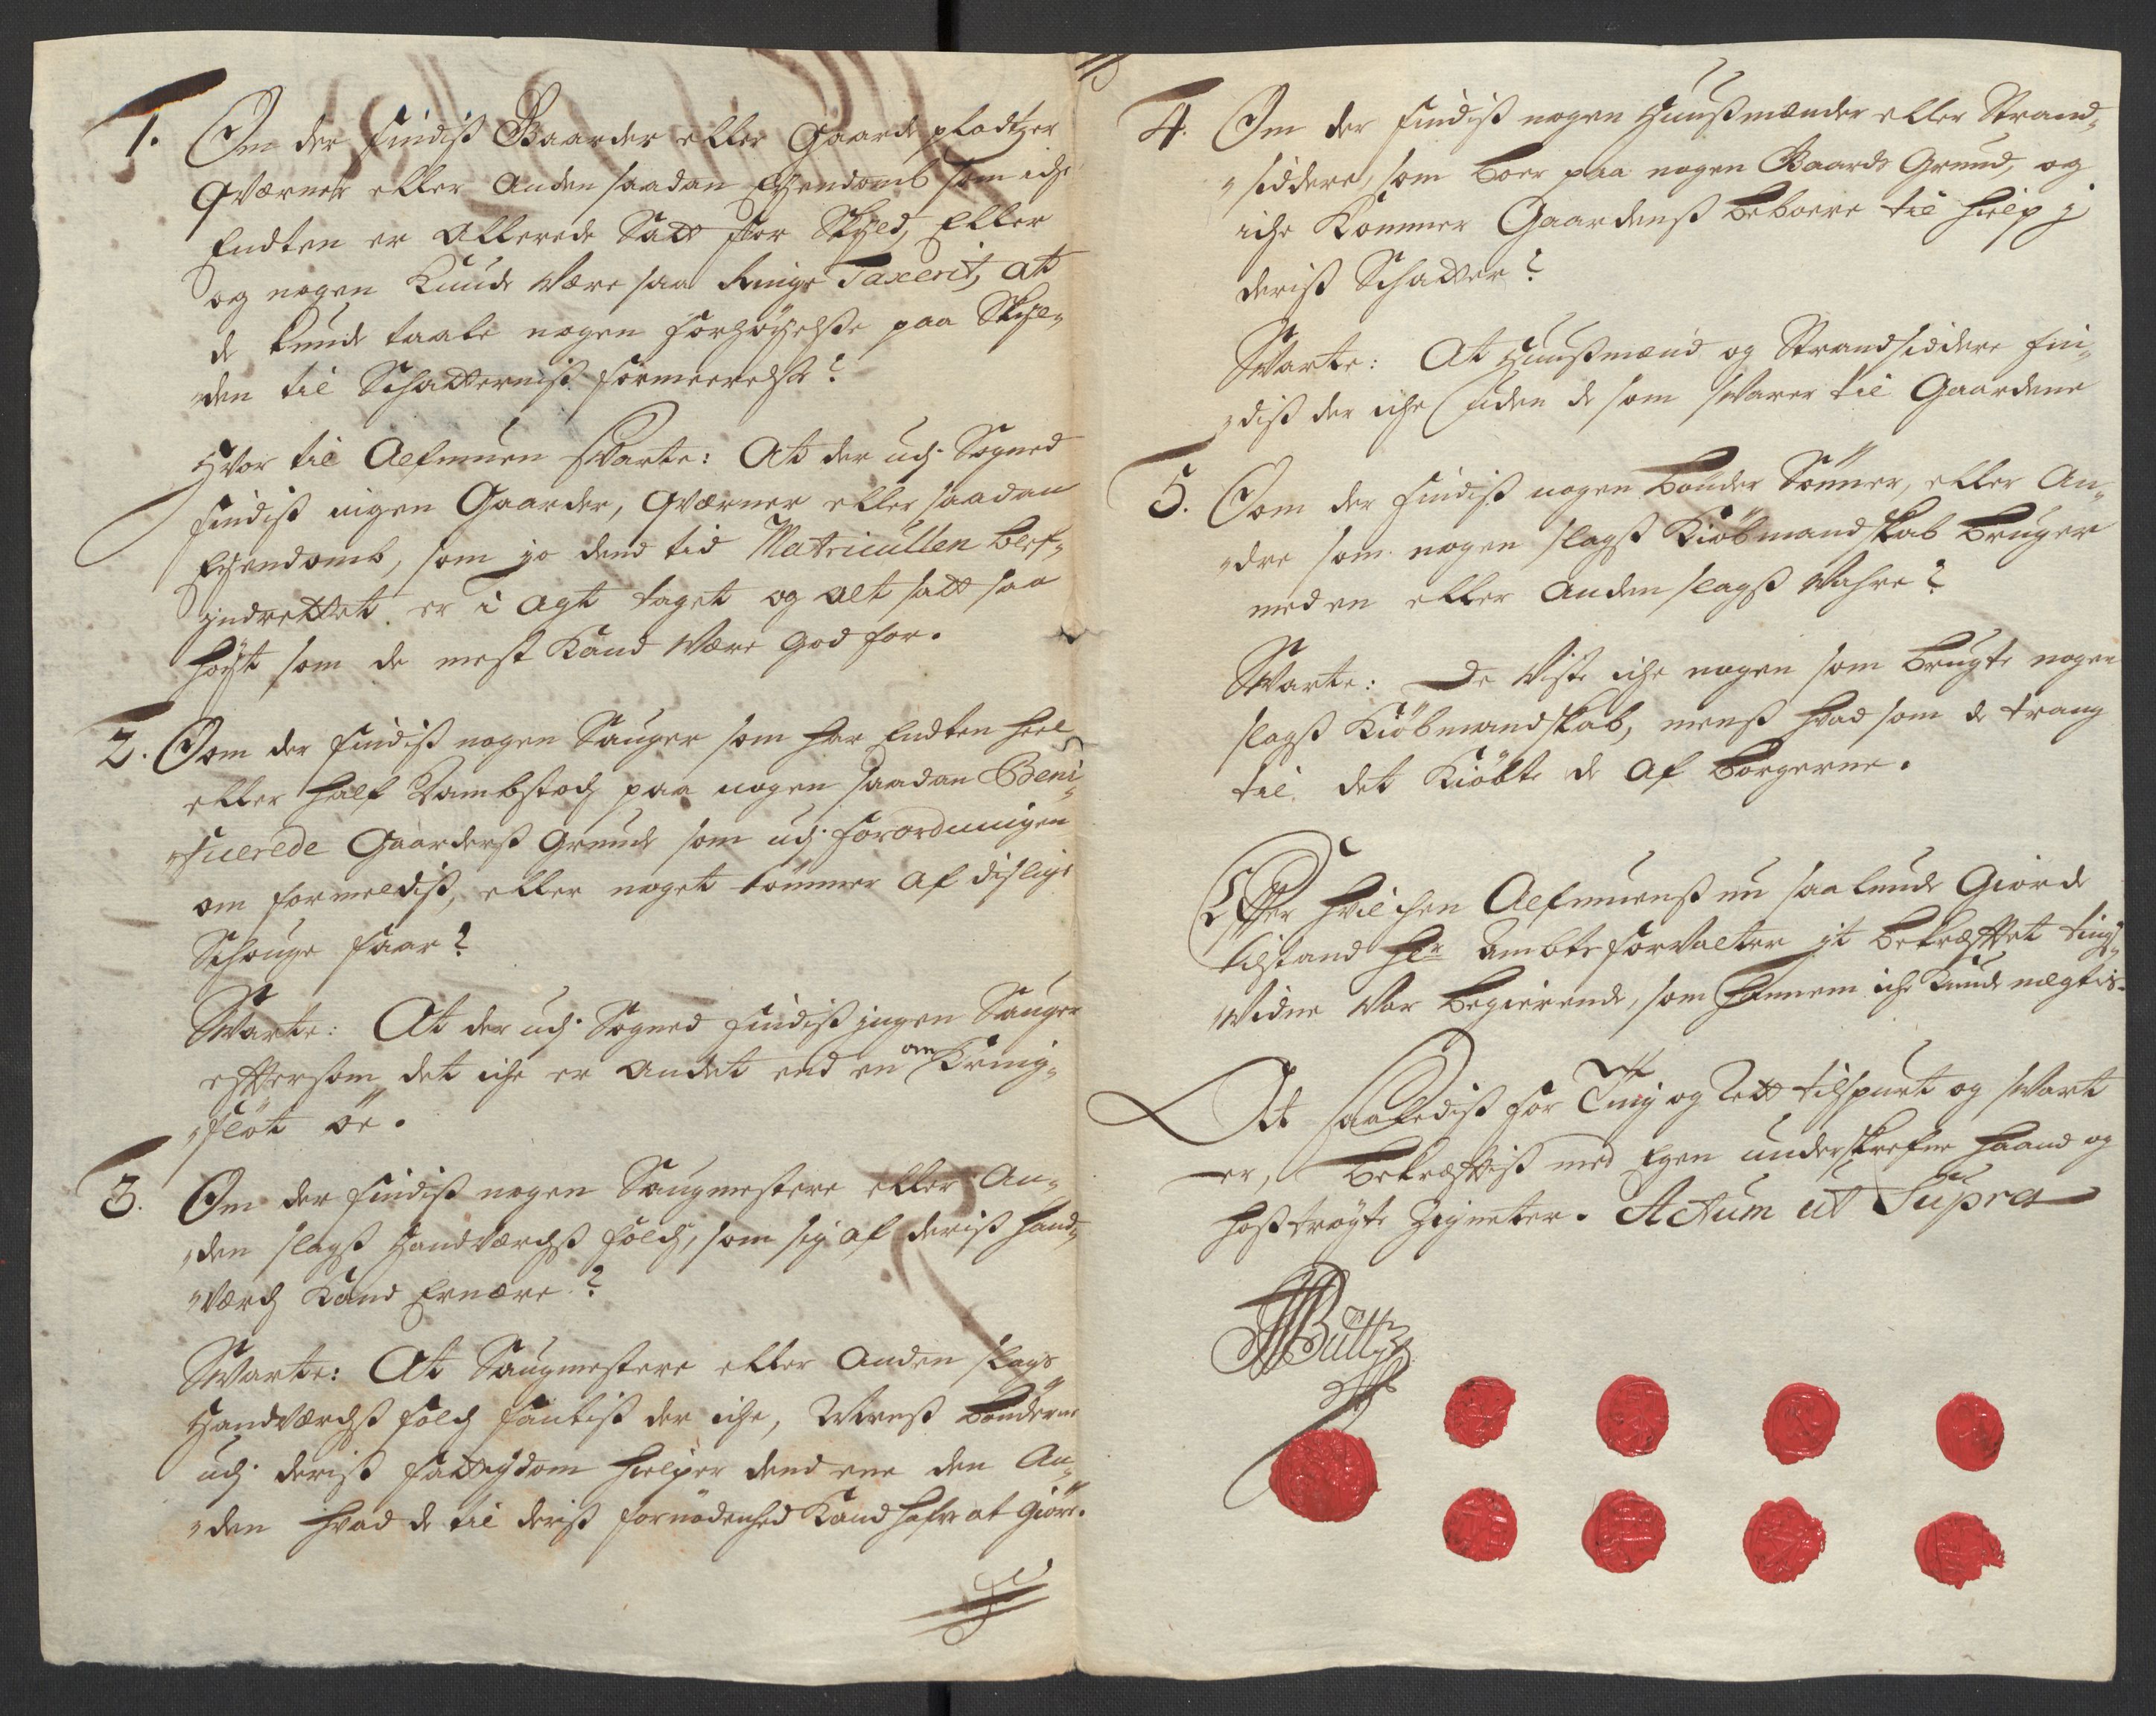 1. Om der findiß Gaarder eller Gaarde pladtzer
Qværner eller anden saadan Eyendomb som iche
Endten er allerede Satt for Skyld, Eller
og nogen Kunde være saa Ringe Taxerit, at
de kunde taale nogen forhøyelße paa Skyl„
„den til Schatterniß formeerelße?
Hvor til Alfmuen svarte: At der udj Sogned
findiß ingen Gaarder, Qværner eller saadan
Eyendomb, som jo dend tid Matricullen blef„
jndrettet er i agt taget og alt satt saa
høyt som de mest Kand være god for.
2. Om der findiß nogen Sauger som har Endten heel
eller half Dambstoch paa nogen saadan Beni„
„ficerede Gaarderß Grunde som udj forordningen
om formeldiß, eller noget tømmer af dislige
Schouge faar?
Svarte: At der udj Sogned findiß jngen Sauger
eftersom det iche er andet end en om Kring„
„fløt øe.
3. Om der findiß nogen Saugmestere eller An„
„den slagß Handværchß folch, som sig af deriß hand„
„værch Kand Ernære?
Svarte: At Saugmestere eller anden slags
Handværchß folch fantiß der iche, Mens bønderne
udj deriß fattigdom hielper dend ene den An„
„den hvad de til deriß fornødenhed Kand hafve at giøre.
4. Om der findiß nogen Huußmænder eller Strand„
„siddere, som boer paa nogen Gaards Grund, og
iche Kommer Gaardenß beboere til hielp j
deriß Schatter?
Svarte: At Huußmænd og Strandsiddere fin„
„diß der iche uden de som svarer til Gaardene
5. Om der findiß nogen bønder Sønner, eller An„
„dre som nogen slagß Kiøbmandskab bruger
med en eller anden slagß Vahre?
Svarte: De viste iche nogen som brugte nogen
slagß Kiøbmandskab, menß hvad som de trang
til det Kiøbte de af borgerne.
Efter hvilchen Alfmuenß nu saalunde Giorde
tilstand Hr Ambtsforvalter it bekræfftet ting„
„vidne var begierende, som hannem iche kunde nægtis.
At saalediß for Ting og Rett tilspurt og svart
er, bekræfftiß med Egen underskrefne haand og
hoßtrøgte Zigneter. Actum ut Supra
Büttz